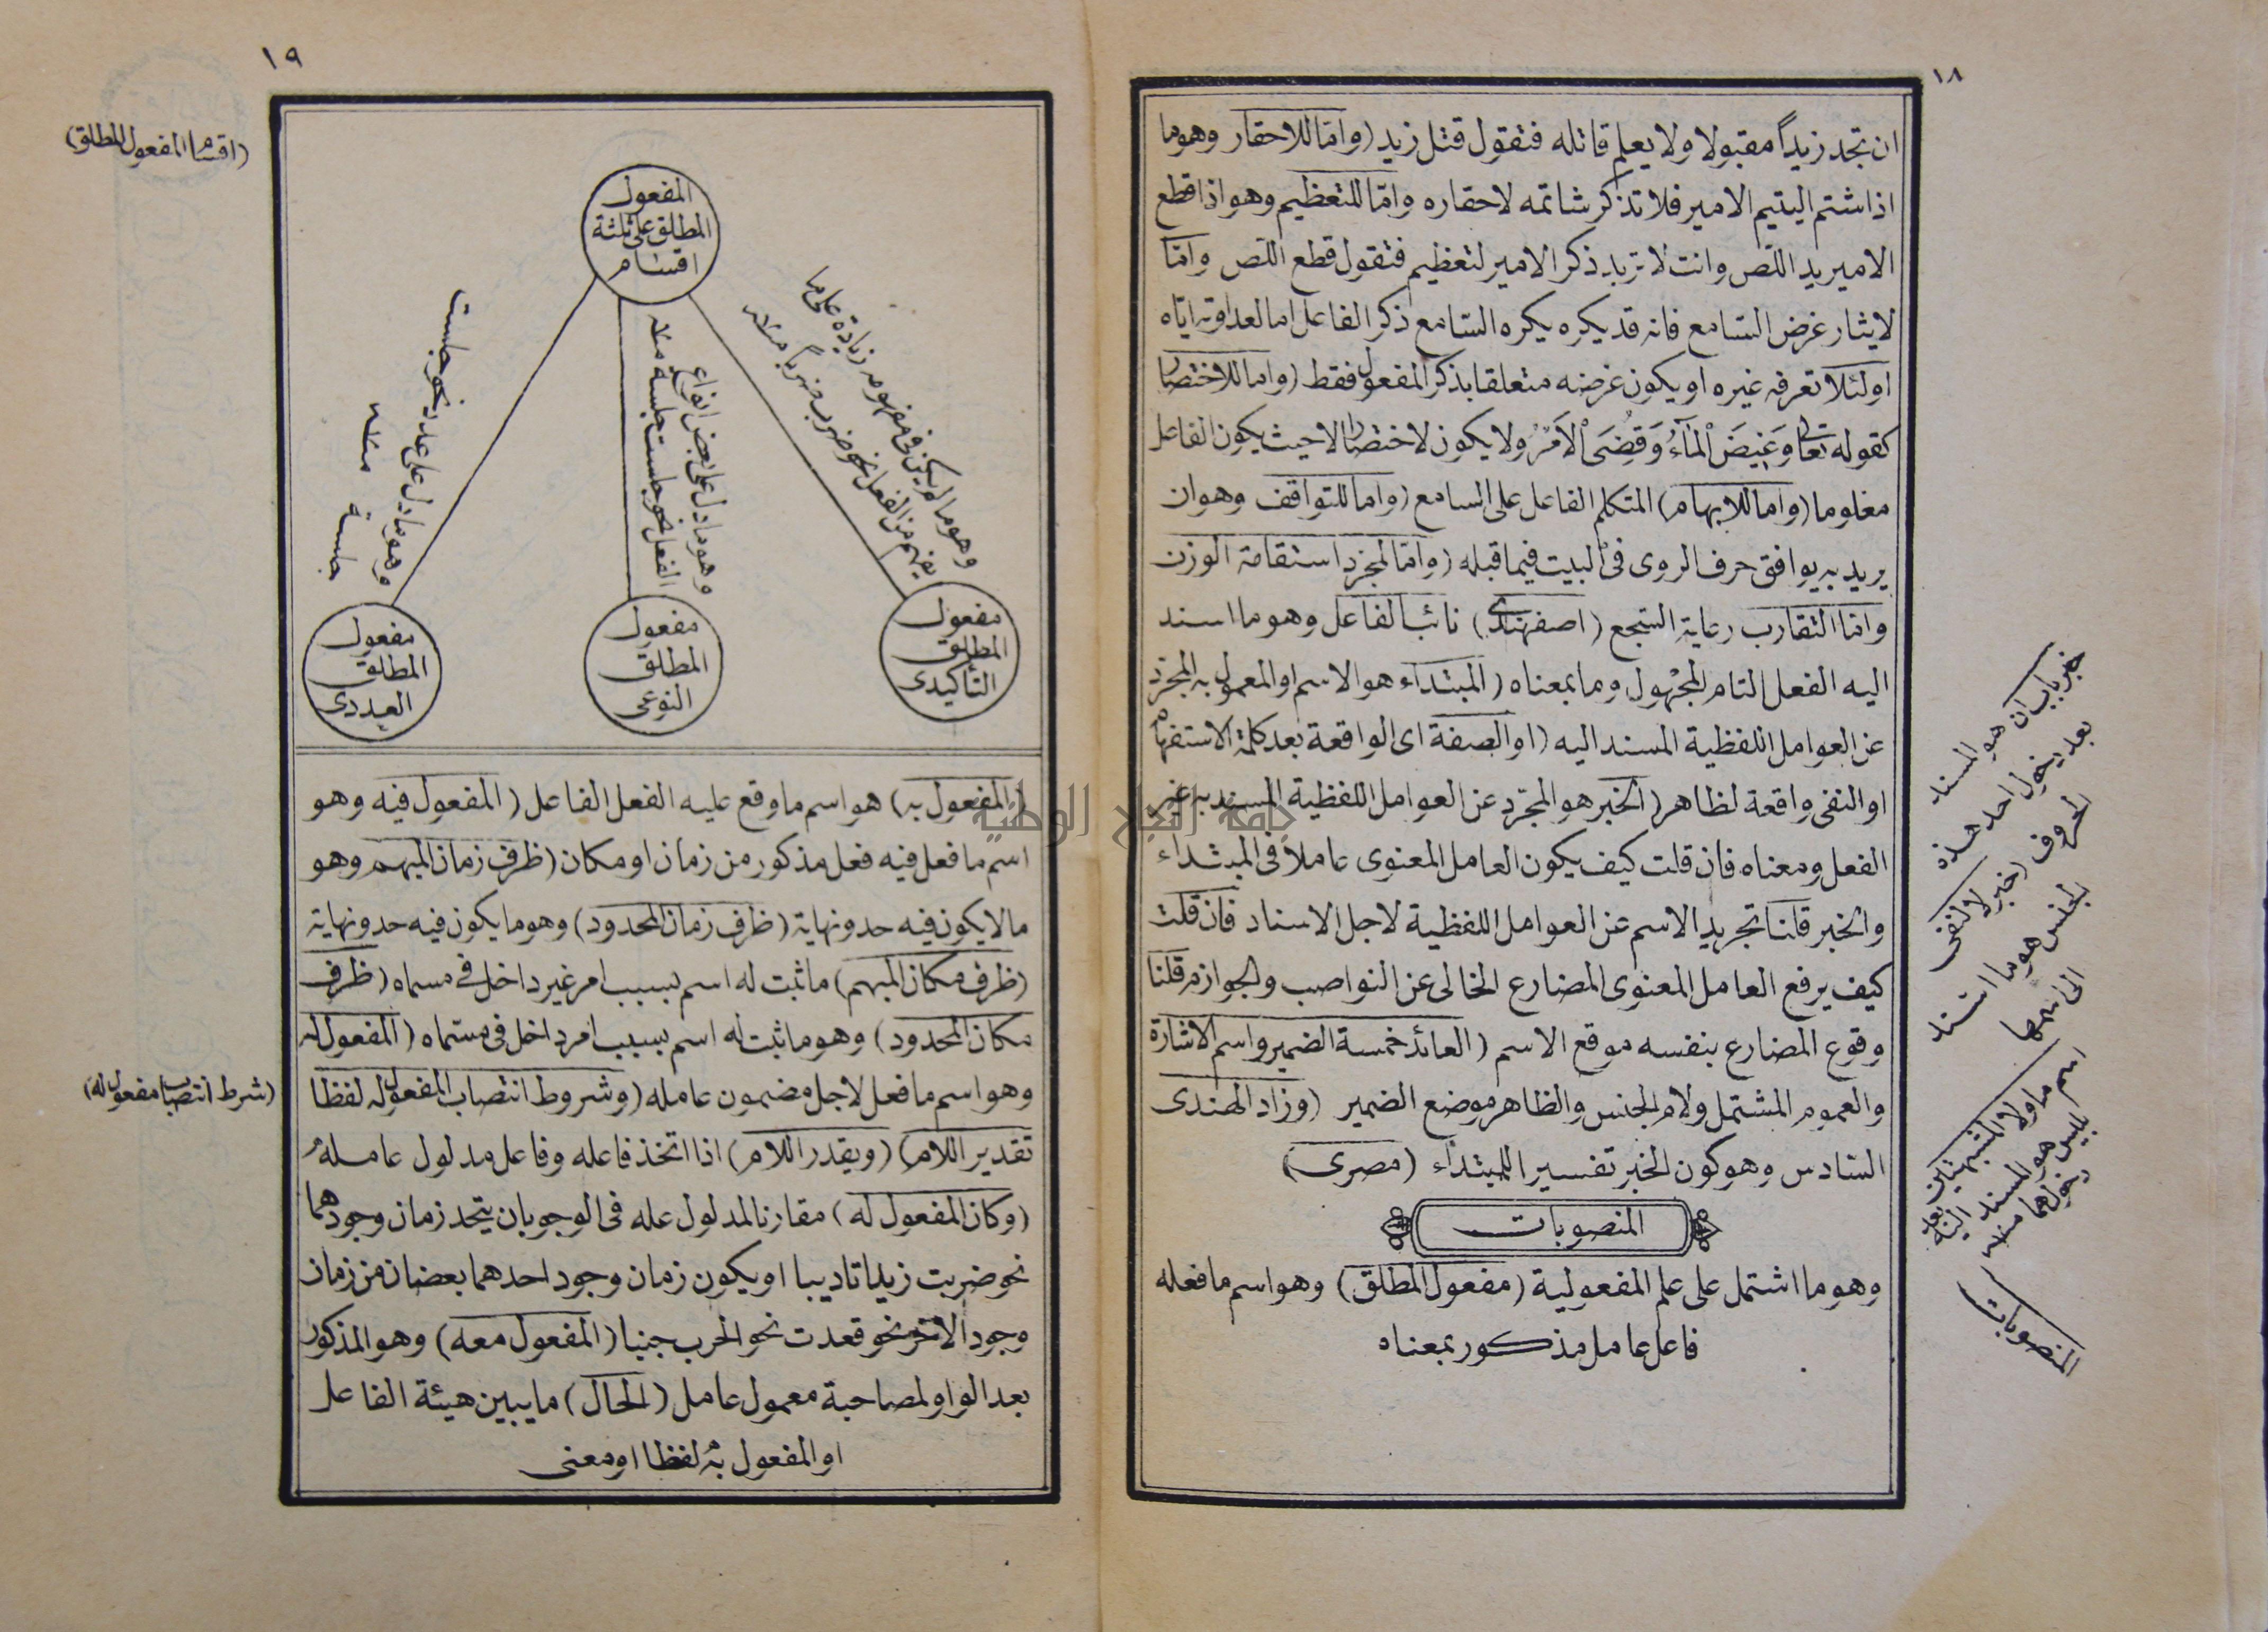 ١٨
ان تجد زيداً مقبولا ولا يعلم قاتله فتقول قتل زيد (واما للاحقار وهوما
اذا شتم اليتيم الامير فلا تذكر شاتمه لاحقاره واما للتعظيم وهو اذا قطع
الامير يد اللص وانت لا تريد ذكر الامير لتعظيم فتقول قطع اللص واما
لايثار غرض السامع فانه قد يكره يكره السامع ذكر الفاعل اما لعداوته اياه
اولئلا تعرفه غيره او يكون غرضه متعلقا بذكر المفعول فقط (واما للاختصار
كقوله تعالى وَغِيضَ الْمَآءُ وَقُضِىَ الْاَمْرُ ولا يكون لاختصار الا حيث يكون الفاعل
معلوما (واما للابهام) المتكلم الفاعل على السامع (واما للتوافق وهوان
يريد به يوافق حرف الروى فى البيت فيما قبله (واما لمجرد استقامة الوزن
واما التقارب رعاية السجع (اصفهندى) نائب الفاعل وهو ما اسند
اليه الفعل التام المجهول وما بمعناه (المبتداء هو الاسم او المعمول به المجرد
عن العوامل اللفظية المسند اليه (او الصفة اى الواقعة بعد كلمة الاستفهام
او النفى واقعة لظاهر (الخبر هو المجرد عن العوامل اللفظية المسند به غير
الفعل ومعناه فان قلت كيف يكون العامل المعنوى عاملاً فى المبتداء
والخبر قلنا تجريد الاسم عن العوامل اللفظية لاجل الاسناد فان قلت
كيف يرفع العامل المعنوى المضارع الخالى عن النواصب والجوازم قلنا
وقوع المضارع بنفسه موقع الاسم (العائد خمسة الضمير واسم الاشارة
والعموم المشتمل ولام الجنس والظاهر موضع الضمير (وزاد الهندى
السادس وهو كون الخبر تفسيرا للمبتداء (مصرى)
المنصوبات
وهو ما اشتمل على علم المفعولية (مفعول المطلق) وهو اسم ما فعله
فاعل عامل مذكور بمعناه
خبر باب ان هو المسند
بعد دخول احد هذه
الحروف (خبر لا لنفى
الجنس هو ما اسند
الى اسمها
اسم ما ولا المشبهتين
بليس هو المسند اليه بعد
دخولهما منه
المنصوبات
١٩
(اقسام المفعول المطلق)
المفعول
المطلق على ثلثة
اقسام
وهو ما لم يكن فى مفهومه زيادة على ما
يفهم من الفعل نحو ضرب ضرباً منه
وهو ما دل على بعض انواع
الفعل نحو جلست جلسة منه
وهو ما دل على عدد نحو جلست
جلسة منه
مفعول
المطلق
التأكيدى
مفعول
المطلق
النوعى
مفعول
المطلق
العددى
(المفعول به) هو اسم ما وقع عليه الفعل الفاعل (المفعول فيه وهو
اسم ما فعل فيه فعل مذكور من زمان او مكان (ظرف زمان المبهم وهو
ما لا يكون فيه حد ونهاية (ظرف زمان المحدود) وهو ما يكون فيه حد ونهاية
(ظرف مكان المبهم) ما ثبت له اسم بسبب امر غير داخل فى مسماه (ظرف
مكان المحدود) وهو ما ثبت له اسم بسبب امر داخل فى مسماه (المفعول له
وهو اسم ما فعل لاجل مضمون عامله (وشروط انتصاب المفعول له لفظا
تقدير اللام) (ويقدر اللام) اذا اتخذ فاعله وفاعل مدلول عامله
(وكان المفعول له) مقارنا لمدلول عله فى الوجوب ان يتحد زمان وجودهما
نحو ضربت زيدا تاديبا او يكون زمان وجود احدهما بعضا من زمان
وجود الآخر نحو قعدت نحو الحرب جبنا (المفعول معه) وهو المذكور
بعد الواو لمصاحبة معمول عامل (الحال) ما يبين هيئة الفاعل
او المفعول به لفظا او معنى
(شرط انتصاب مفعول له)
جامعة النجاح الوطنية